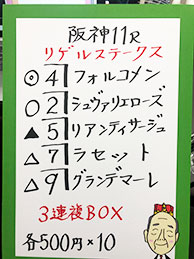 阪神11R
リゲルステークス
◎4 フォルコメン
○2 シュヴァリエローズ
▲5 リアンティサージュ
△7 ラセット
△9 グランデマーレ
3連複BOX
各500円×10